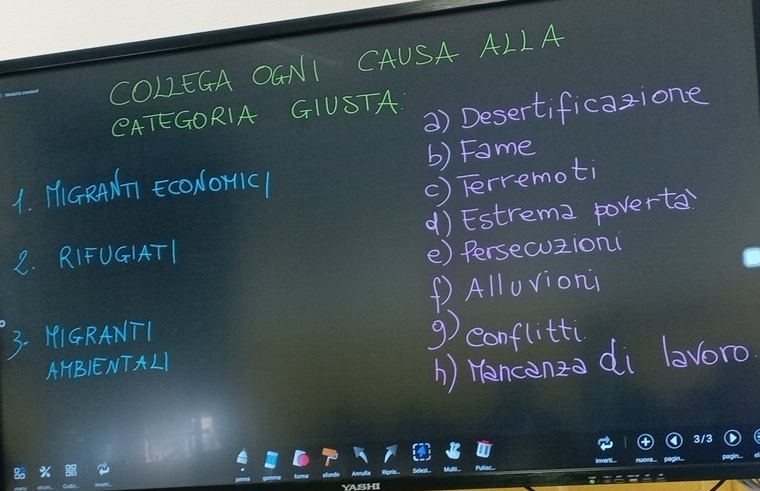 Modalità standard
COLLEGA OGNI CAUSA ALLA
CATEGORIA GIUSTA:
1. MIGRANTI ECONOMICI
2. RIFUGIATI
3- MIGRANTI
AMBIENTALI
a) Desertificazione
b) Fame
c) Terremoti
d) Estrema povertà
e) Persecuzioni
f) Alluvioni
g) Conflitti
h) Mancanza di lavoro
penna gomma forma sfondo Annulla Ripris... Selezi... Multi... Pulisc...
inverti... nuova... pagin... 3/3 pagin...
menu strum... Codic... inverti...
YASHI